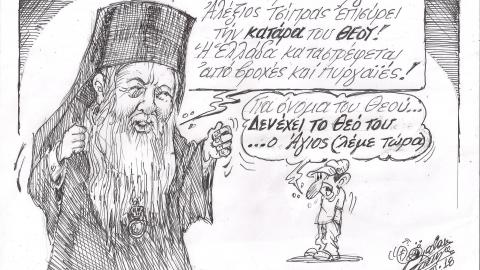 Αλέξιος Τσίπρας Επισύρει
την κατάρα του ΘΕΟΥ!
Ή Ελλάδα καταστρέφεται
από βροχές και πυρκαϊές.!
Για όνομα του Θεού...
ΔΕΝ ΕΧΕΙ ΤΟ ΘΕΟ ΤΟΥ
...ο Άγιος (λέμε τώρα)